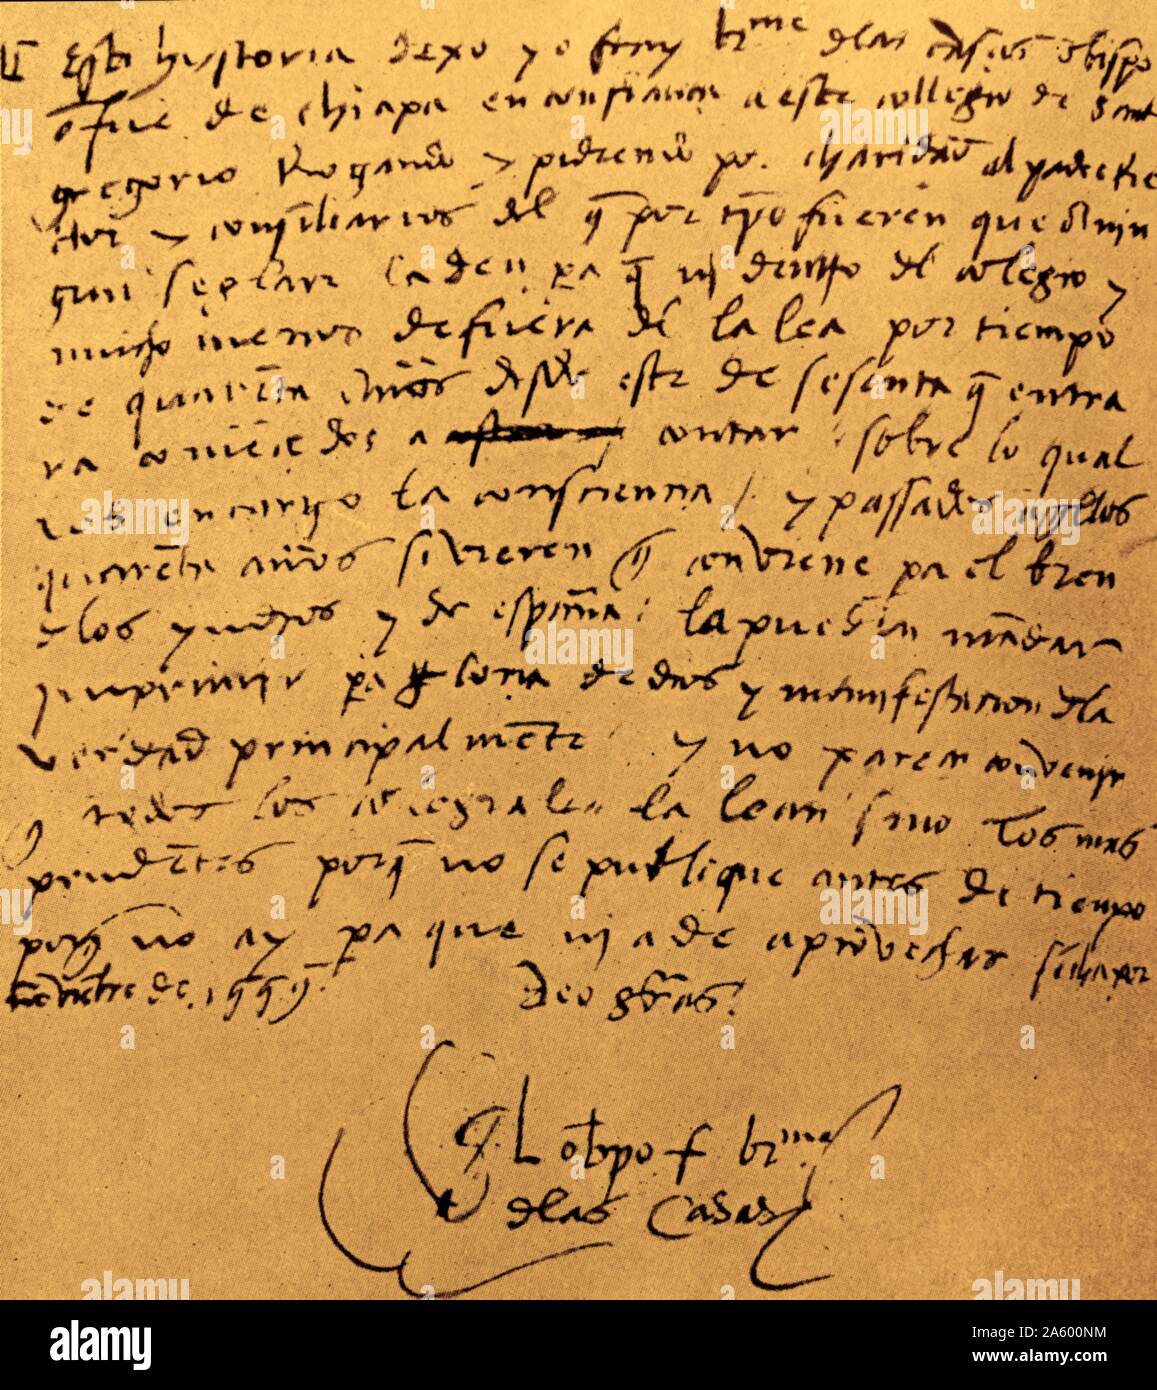 Esta hystoria dexo yo fray br.me dlas casas obispo
q fue de chiapa en confiança a este collegio de Sant
gregorio Rogando y pidiendo por charidad al padre Re
ctor y consiliarios del q por tpo fueren que a nin
gun seglar la den pa q ni dentro del colegio y
mucho menos de fuera dl la lea por tiempo
de quarẽta años desde este de sesenta q entra
ra contar sobre lo qual
les encargo la consciencia / y passados aqllos
quarẽta años si vieren q conviene pa el bien
d los yndios y de españa la pueden mãdar
ynprimir pa gloria de dios y manifestacion dla
verdad principalmẽte y no parece convenir
q todos los colegiales la lean sino los mas
prudẽtes porq no se publique antes de tiempo
porq no ay pa que ni a de aprovechar fecha por
noviẽbre de .1559. Deo grãs.
El obpo f br.me
dlas Casas
a
alamy
alamy
Image ID: 2A600NM
www.alamy.com